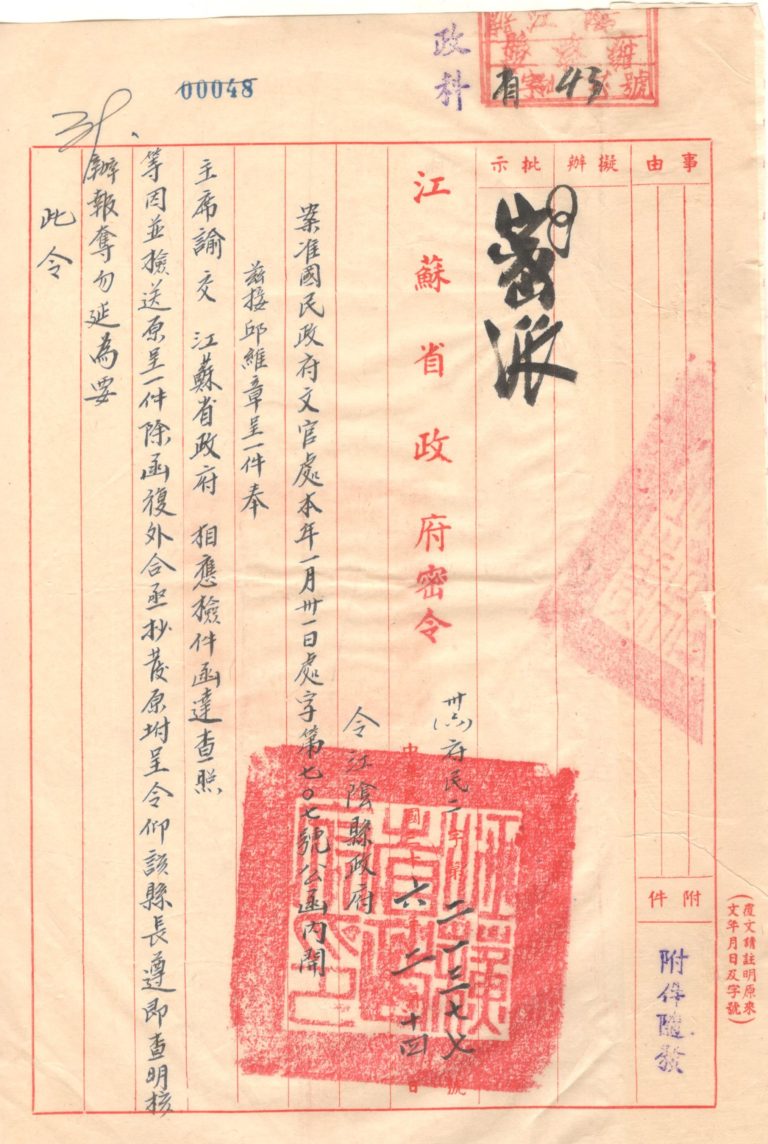 00048
政科
號
有 43
事由
擬辦
批示
密派
附件
附件隨發
(覆文請註明原來文年月日及字號)
江蘇省政府密令
卅六府民二字第二一三七七號
中華民國三十六年二月十四日
令江陰縣政府
案准國民政府文官處本年一月卅一日處字第七〇七號公函內開
茲接邱維章呈一件奉
主席諭交 江蘇省政府 相應檢件函達查照
等因並檢送原呈一件除函復外合亟抄發原坿呈令仰該縣長遵即查明核
辦報奪勿延為要
此令